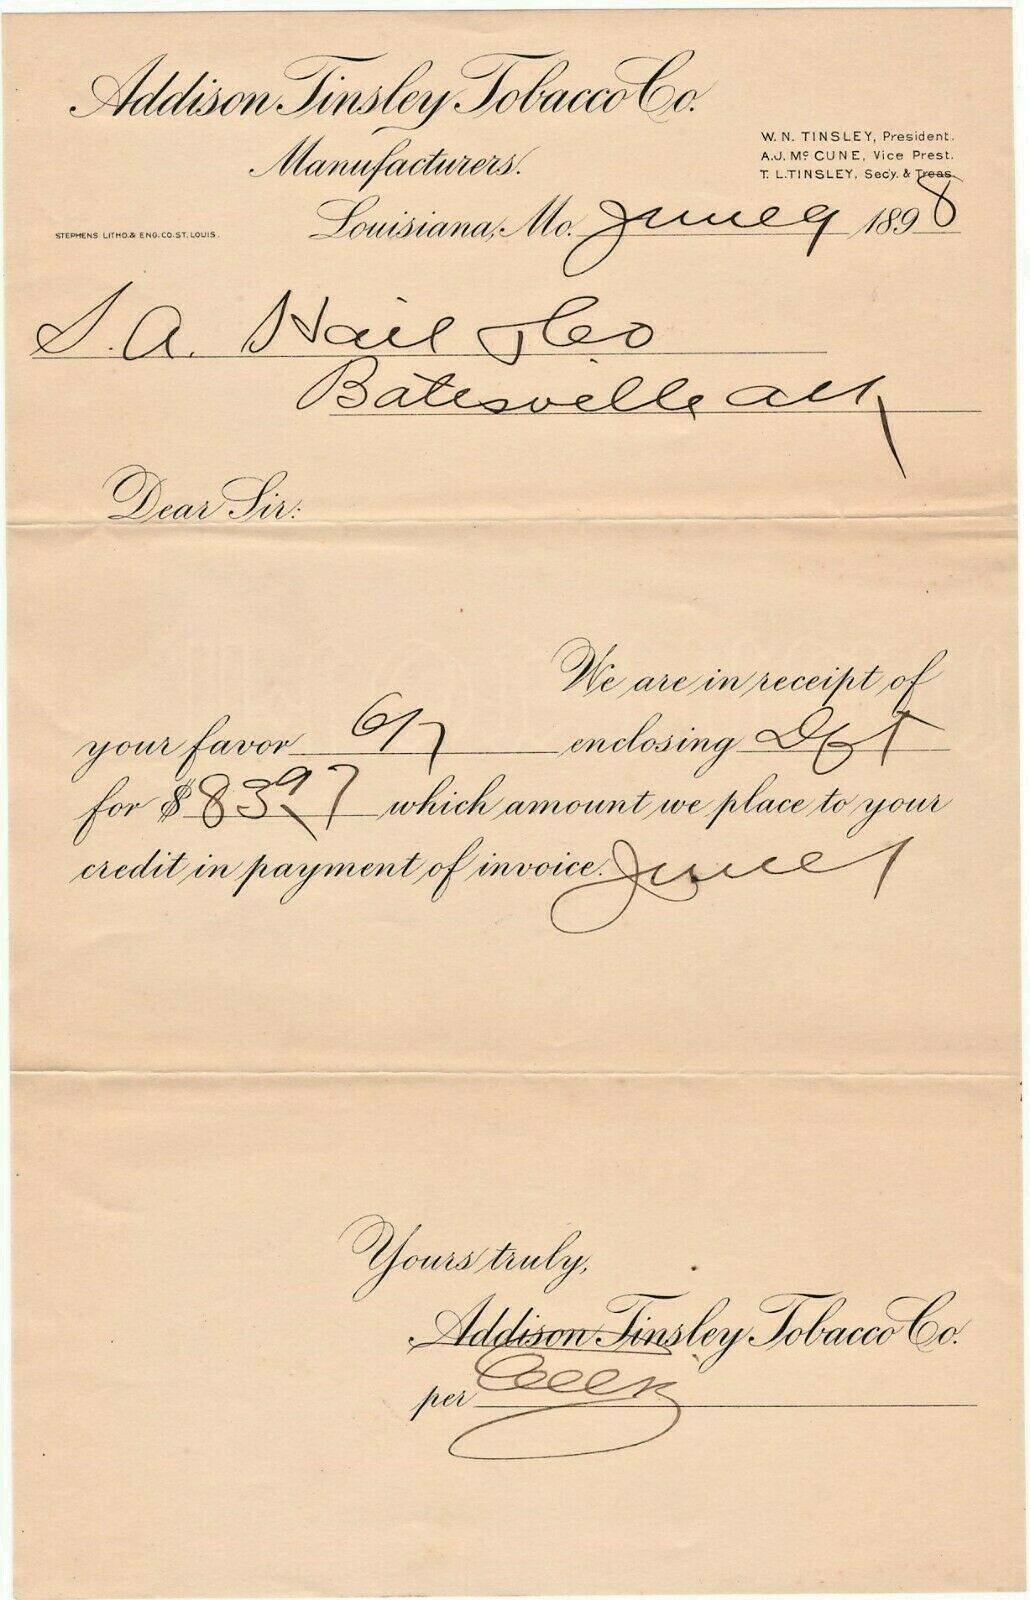 Addison Tinsley Tobacco Co.
Manufacturers.
W. N. TINSLEY, President.
A. J. McCUNE, Vice Prest.
T. L. TINSLEY, Sec'y. & Treas.
STEPHENS LITHO. & ENG. CO. ST. LOUIS.
Louisiana, Mo. June 9 1898
S. A. Hail & Co
Batesville Ark
Dear Sir:
We are in receipt of
your favor 6/7 enclosing Dft
for $ 83 97 which amount we place to your
credit in payment of invoice. June 1
Yours truly,
Addison Tinsley Tobacco Co.
per